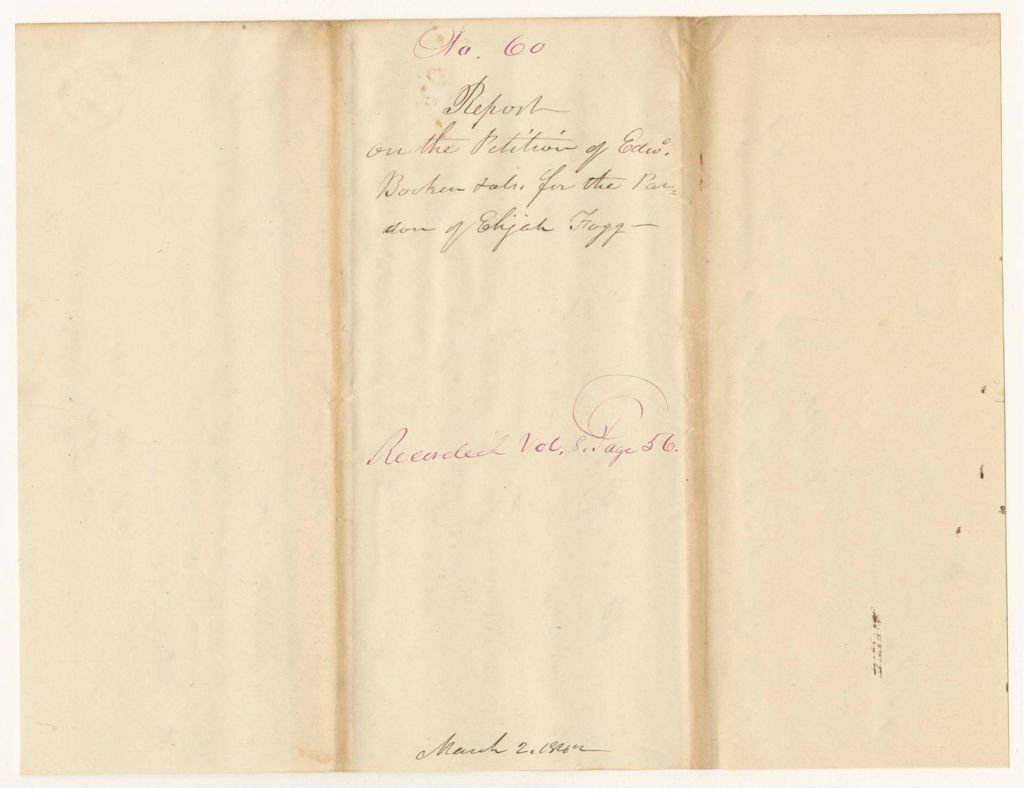 No. 60
Report
on the Petition of Edwd.
& als. for the Par=
don of Elijah Fogg —
Recorded Vol. 8. Page 56.
March 2. 1842